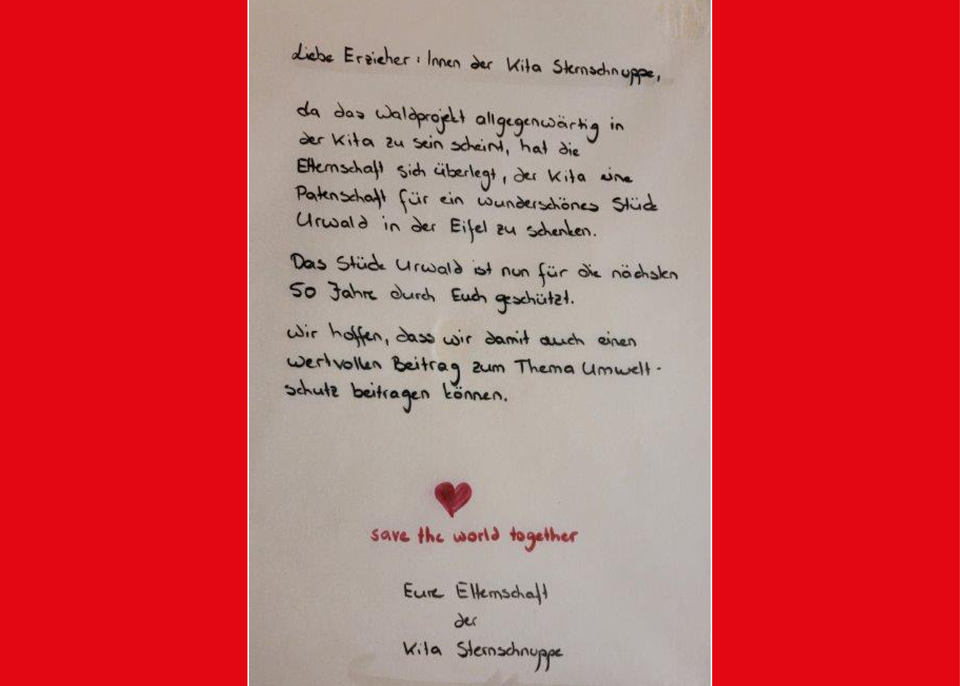 Liebe Erzieher:Innen der Kita Sternschnuppe,
da das Waldprojekt allgegenwärtig in
der Kita zu sein scheint, hat die
Elternschaft sich überlegt, der Kita eine
Patenschaft für ein wunderschönes Stück
Urwald in der Eifel zu schenken.
Das Stück Urwald ist nun für die nächsten
50 Jahre durch Euch geschützt.
Wir hoffen, dass wir damit auch einen
wertvollen Beitrag zum Thema Umwelt-
schutz beitragen können.
save the world together
Eure Elternschaft
der
Kita Sternschnuppe